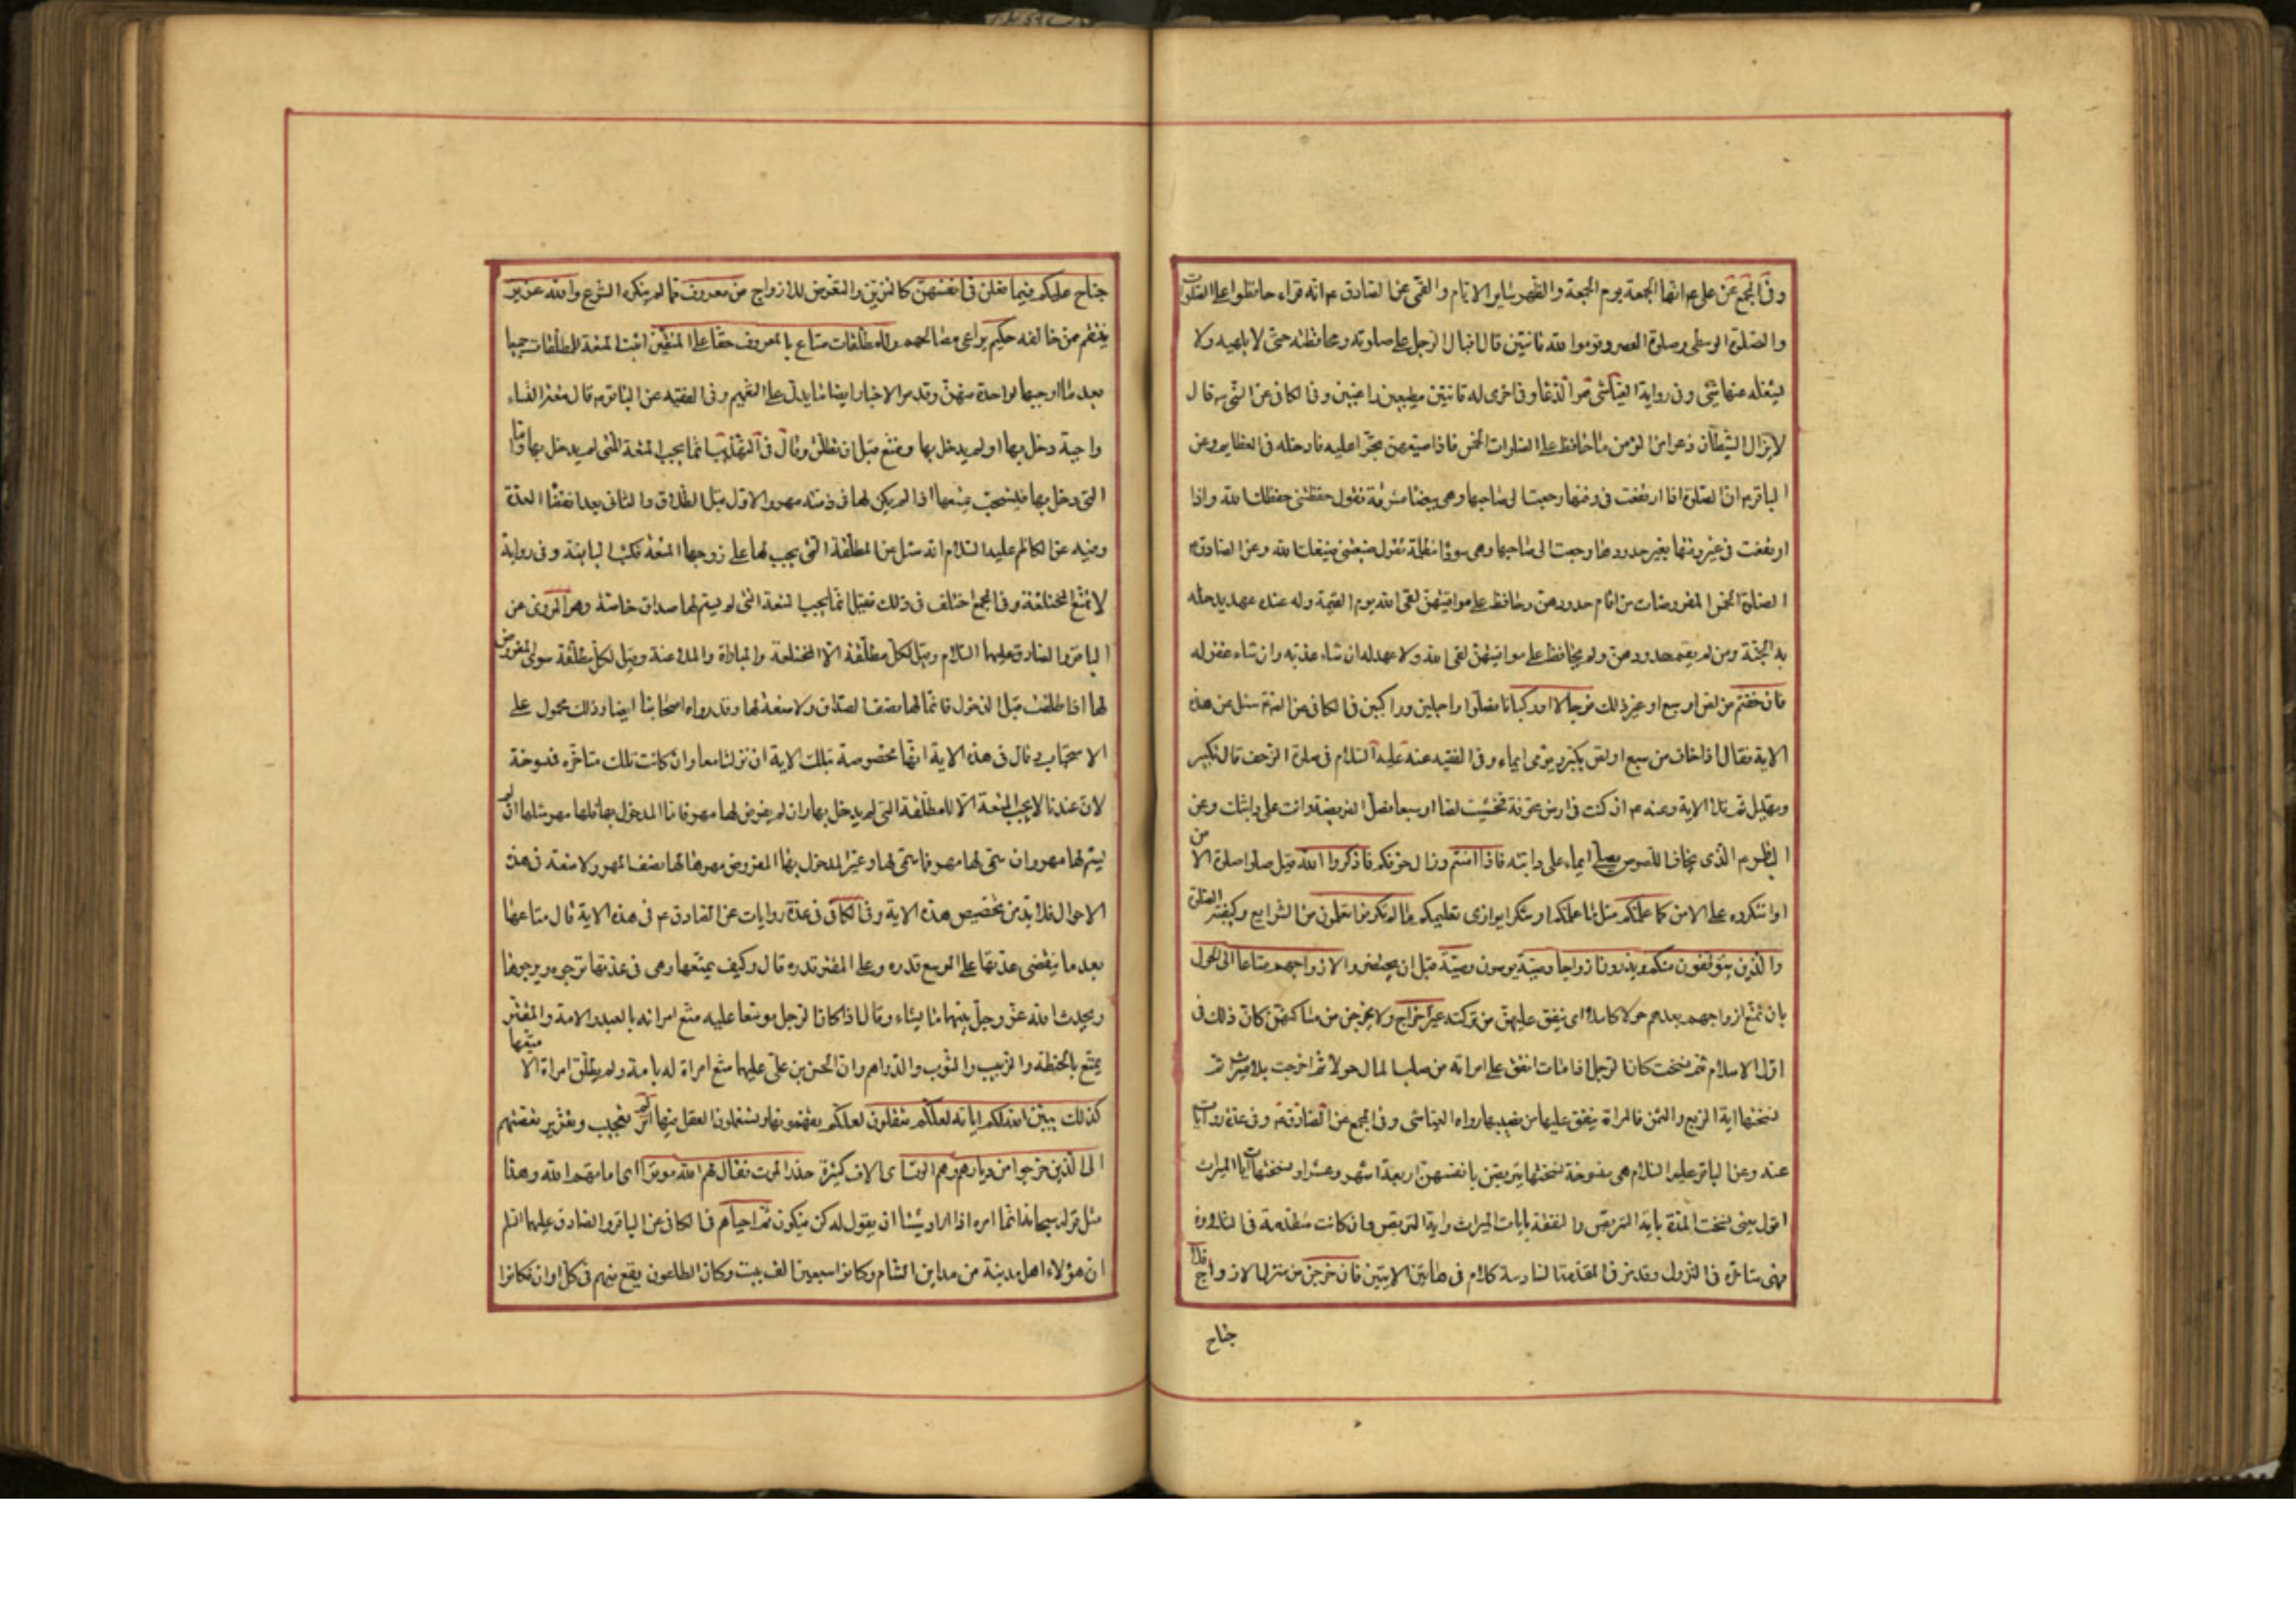 وفى المجمع عن على ع انها الجمعة يوم الجمعة والظهر ساير الايام والقمى عن الصادق ع انه قراء حافظوا على الصلوات
والصلوة الوسطى وصلوة العصر وقوموا لله قانتين قال اقبال الرجل على صلوته ومحافظته حتى لا يلهيه ولا
يشغله عنها شئ وفى رواية العياشى هو الدعا وفى اخرى له قانتين مطيعين راغبين وفى الكافى عن النبى ص قال
لا يزال الشيطان ذعرا من المؤمن ما حافظ على الصلوات الخمس فاذا ضيعهن تجرا عليه فادخله فى العظايم وعن
الباقر ع ان الصلوة اذا ارتفعت فى وقتها رجعت الى صاحبها وهى بيضا مشرقة تقول حفظتنى حفظك الله واذا
ارتفعت فى غير وقتها بغير حدودها رجعت الى صاحبها وهى سودا مظلمة تقول ضيعتنى ضيعك الله وعن الصادق ع
الصلوة الخمس المفروضات من اقام حدودهن وحافظ على مواقيتهن لقى الله يوم القيمة وله عنده عهد يدخله
به الجنة ومن لم يقم حدودهن ولم يحافظ على مواقيتهن لقى الله ولا عهد له ان شاء عذبه وان شاء غفر له
فان خفتم من لص او سبع او غير ذلك فرجالا او ركبانا فصلوا راجلين وراكبين فى الكافى عن الص ع سئل عن هذه
الاية فقال اذا خاف من سبع او لص يكبر ويومى ايماء وفى الفقيه عنه عليه السلام فى صلوة الزحف قال تكبير
وتهليل ثم تلا الاية وعنه ع ان كنت فى ارض مخوفة فخشيت لصا او سبعا فصل الفريضة وانت على دابتك وعن
الكاظم ع الذى يخاف اللصوص يصلى ايماء على دابته فاذا امنتم وزال خوفكم فاذكروا الله قيل صلوا صلوة الامن
او اشكروه على الامن كما علمكم مثل ما علمكم او شكرا يوازى تعليمكم ما لم تكونوا تعلمون من الشرايع وكيفية الصلوة
والذين يتوفون منكم ويذرون ازواجا وصية يوصون وصية قبل ان يحتضروا لازواجهم متاعا الى الحول
بان تمتع ازواجهم بعدهم حولا كاملا اى ينفق عليهن من تركته غير اخراج ولا يخرجن من مساكنهن كان ذلك فى
اول الاسلام ثم نسخت كان الرجل اذا مات انفق على امراته من صلب المال حولا ثم اخرجت بلا ميراث ثم
نسختها اية الربع والثمن فالمراة ينفق عليها من نصيبها رواه العياشى وفى المجمع عن الصادق ع وفى عدة روايات
عنه وعن الباقر عليه السلام هى منسوخة نسختها يتربصن بانفسهن اربعة اشهر وعشرا ونسختها ايات الميراث
اقول يعنى نسخت المدة باية التربص والنفقة بايات الميراث واية التربص وان كانت متقدمة فى التلاوة
فهى متاخرة فى النزول وقد مر فى المقدمة السادسة كلام فى هاتين الايتين فان خرجن من منزل الازواج فلا
جناح
جناح عليكم فيما فعلن فى انفسهن كالتزين والتعرض للازواج من معروف مما لم ينكره الشرع والله عزيز
ينتقم ممن خالفه حكيم يراعى مصالحهم وللمطلقات متاع بالمعروف حقا على المتقين اثبت المتعة للمطلقات جميعا
بعد ما اوجبها لواحدة منهن وقد مر الاخبار وايضا ما يدل على التعميم وفى الفقيه عن الباقر ع قال متعة النساء
واجبة دخل بها او لم يدخل بها وتمتع قبل ان تطلق وقال فى التهذيب انما يجب المتعة للتى لم يدخل بها واما
التى دخل بها فيستحب تمتيعها اذا لم يكن لها فى ذمته مهر والاول قبل الطلاق والثانى بعد انقضاء العدة
وفيه عن الكاظم عليه السلام انه سئل عن المطلقة التى يجب لها على زوجها المتعة فكتب البائنة وفى رواية
لا تمتع المختلعة وفى المجمع اختلف فى ذلك فقيل انما يجب المتعة التى لم يسم لها صداق خاصة وهو المروى عن
الباقر والصادق عليهما السلام وقيل لكل مطلقة الا المختلعة والمباراة والملاعنة وقيل لكل مطلقة سوى المفروض
لها اذا طلقت قبل الدخول فانما لها نصف الصداق ولا متعة لها وقد رواه اصحابنا ايضا وذلك محمول على
الاستحباب وقال فى هذه الاية انها مخصوصة بتلك الاية ان نزلتا معا وان كانت تلك متاخرة فمنسوخة
لان عندنا لا يجب المتعة الا للمطلقة التى لم يدخل بها وان لم يفرض لها مهر فاما المدخول بها فلها مهر مثلها ان لم
يسم لها مهر وان سمى لها مهر فما سمى لها وغير المدخول بها المفروض مهرها لها نصف المهر ولا متعة فى هذه
الاحوال فلا بد من تخصيص هذه الاية وفى الكافى فى عدة روايات عن الصادق ع فى هذه الاية قال متاعها
بعد ما ينقضى عدتها على الموسع قدره وعلى المقتر قدره قال وكيف يمتعها وهى فى عدتها ترجوه ويرجوها
ويحدث الله عز وجل بينهما ما يشاء وقال اذا كان الرجل موسعا عليه متع امراته بالعبد والامة والمقتر
يمتع بالحنطة والزبيب والثوب والدراهم وان الحسن بن على عليهما متع امراة له بامة ولم يطلق امراة الا متعها
كذلك يبين الله لكم اياته لعلكم تعقلون لعلكم تفهمونها وتستعملون العقل فيها الم تر تعجيب وتقرير لقصتهم
الى الذين خرجوا من ديارهم وهم الوف اى الاف كثيرة حذر الموت فقال لهم الله موتوا اى اماتهم الله وهذا
مثل قوله سبحانه انما امره اذا اراد شيئا ان يقول له كن فيكون ثم احياهم فى الكافى عن الباقر والصادق عليهما السلم
ان هؤلاء اهل مدينة من مداين الشام وكانوا سبعين الف بيت وكان الطاعون يقع فيهم فى كل اوان فكانوا